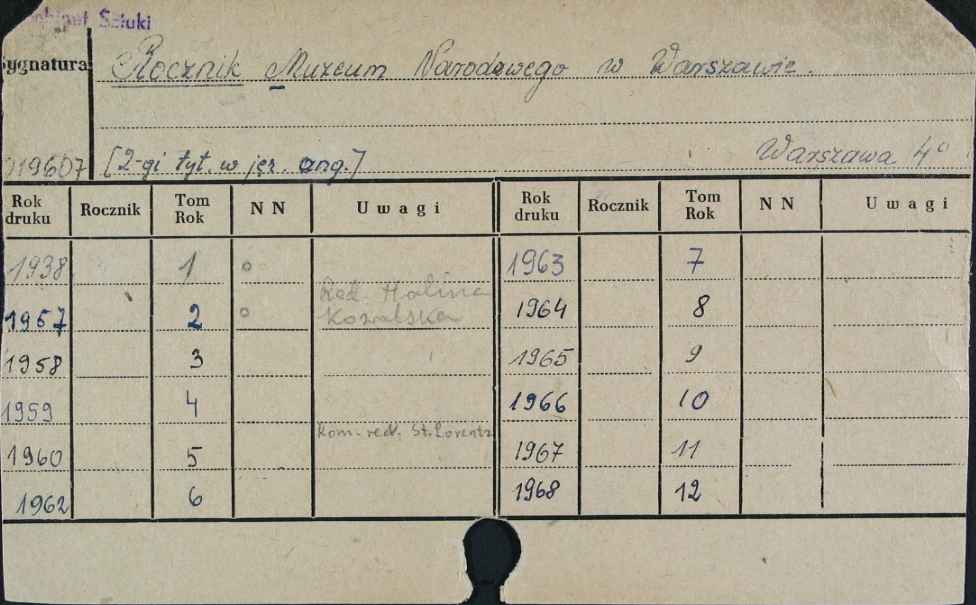 Gabinet Sztuki
Sygnatura
Rocznik Muzeum Narodowego w Warszawie.
19607
[2-gi tyt. w jęz. ang.]
Warszawa 4°
Rok druku Rocznik Tom Rok NN Uwagi Rok druku Rocznik Tom Rok NN Uwagi
1938 1 o 1963 7
1957 2 o Red. Halina Kozalska 1964 8
1958 3 1965 9
1959 4 1966 10
1960 5 Kom. red. St. Lorentz 1967 11
1962 6 1968 12